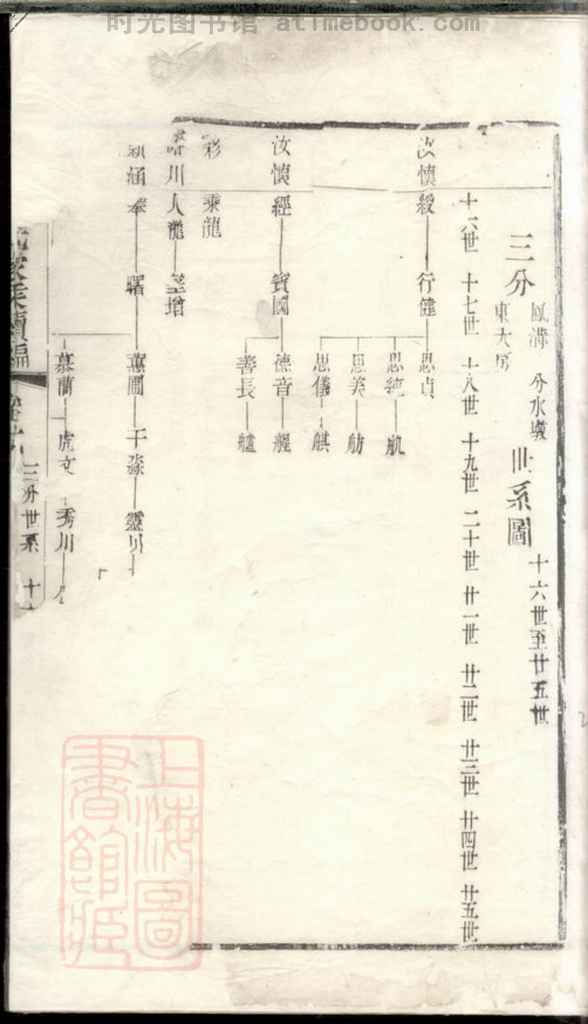 时光图书馆 - atimebook.com
三分
鳳溝 分水墺
東大房
世系圖
十六世至廿五世
十六世 十七世 十八世 十九世 二十世 廿一世 廿二世 廿三世 廿四世 廿五世
汝慎 綬 行健 思貞
思純 航
思美 舫
思儀 麒
汝慎 經 賓國 德音
善長 艫
彩 乘龍
川 人龍 增
涵 奉 曙 蕙圃 于淼
慕蘭 虎文 秀川
家乘續編
三分世系
上海圖書館藏